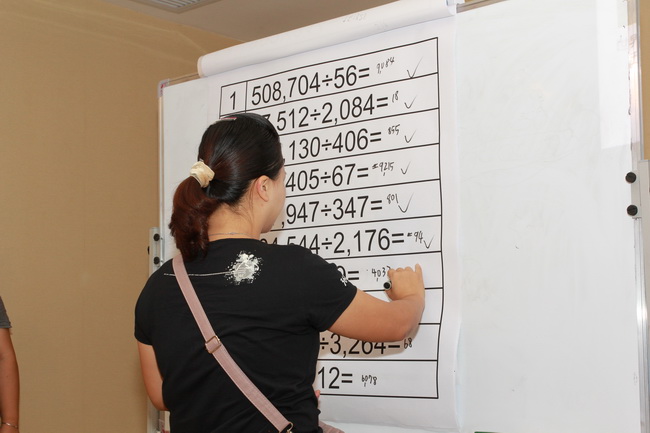 1 508,704÷56= 9,084 ✓
7,512÷2,084= 18 ✓
130÷406= 855 ✓
405÷67= 9,215 ✓
,947÷347= 801 ✓
4,544÷2,176= 94 ✓
= 4,037
÷3,264= 68
12= 6,078